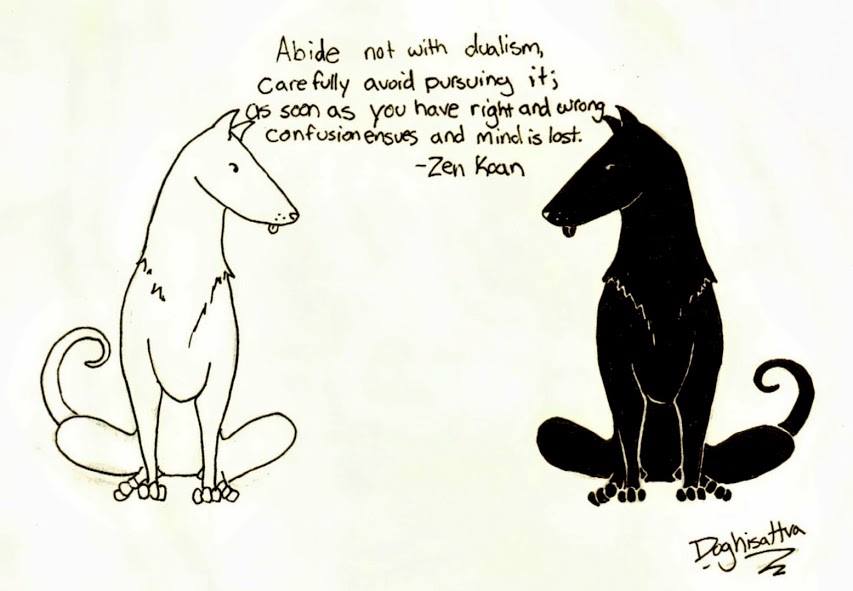 Abide not with dualism,
Carefully avoid pursuing it;
as soon as you have right and wrong
confusion ensues and mind is lost.
-Zen Koan
Doghisattva